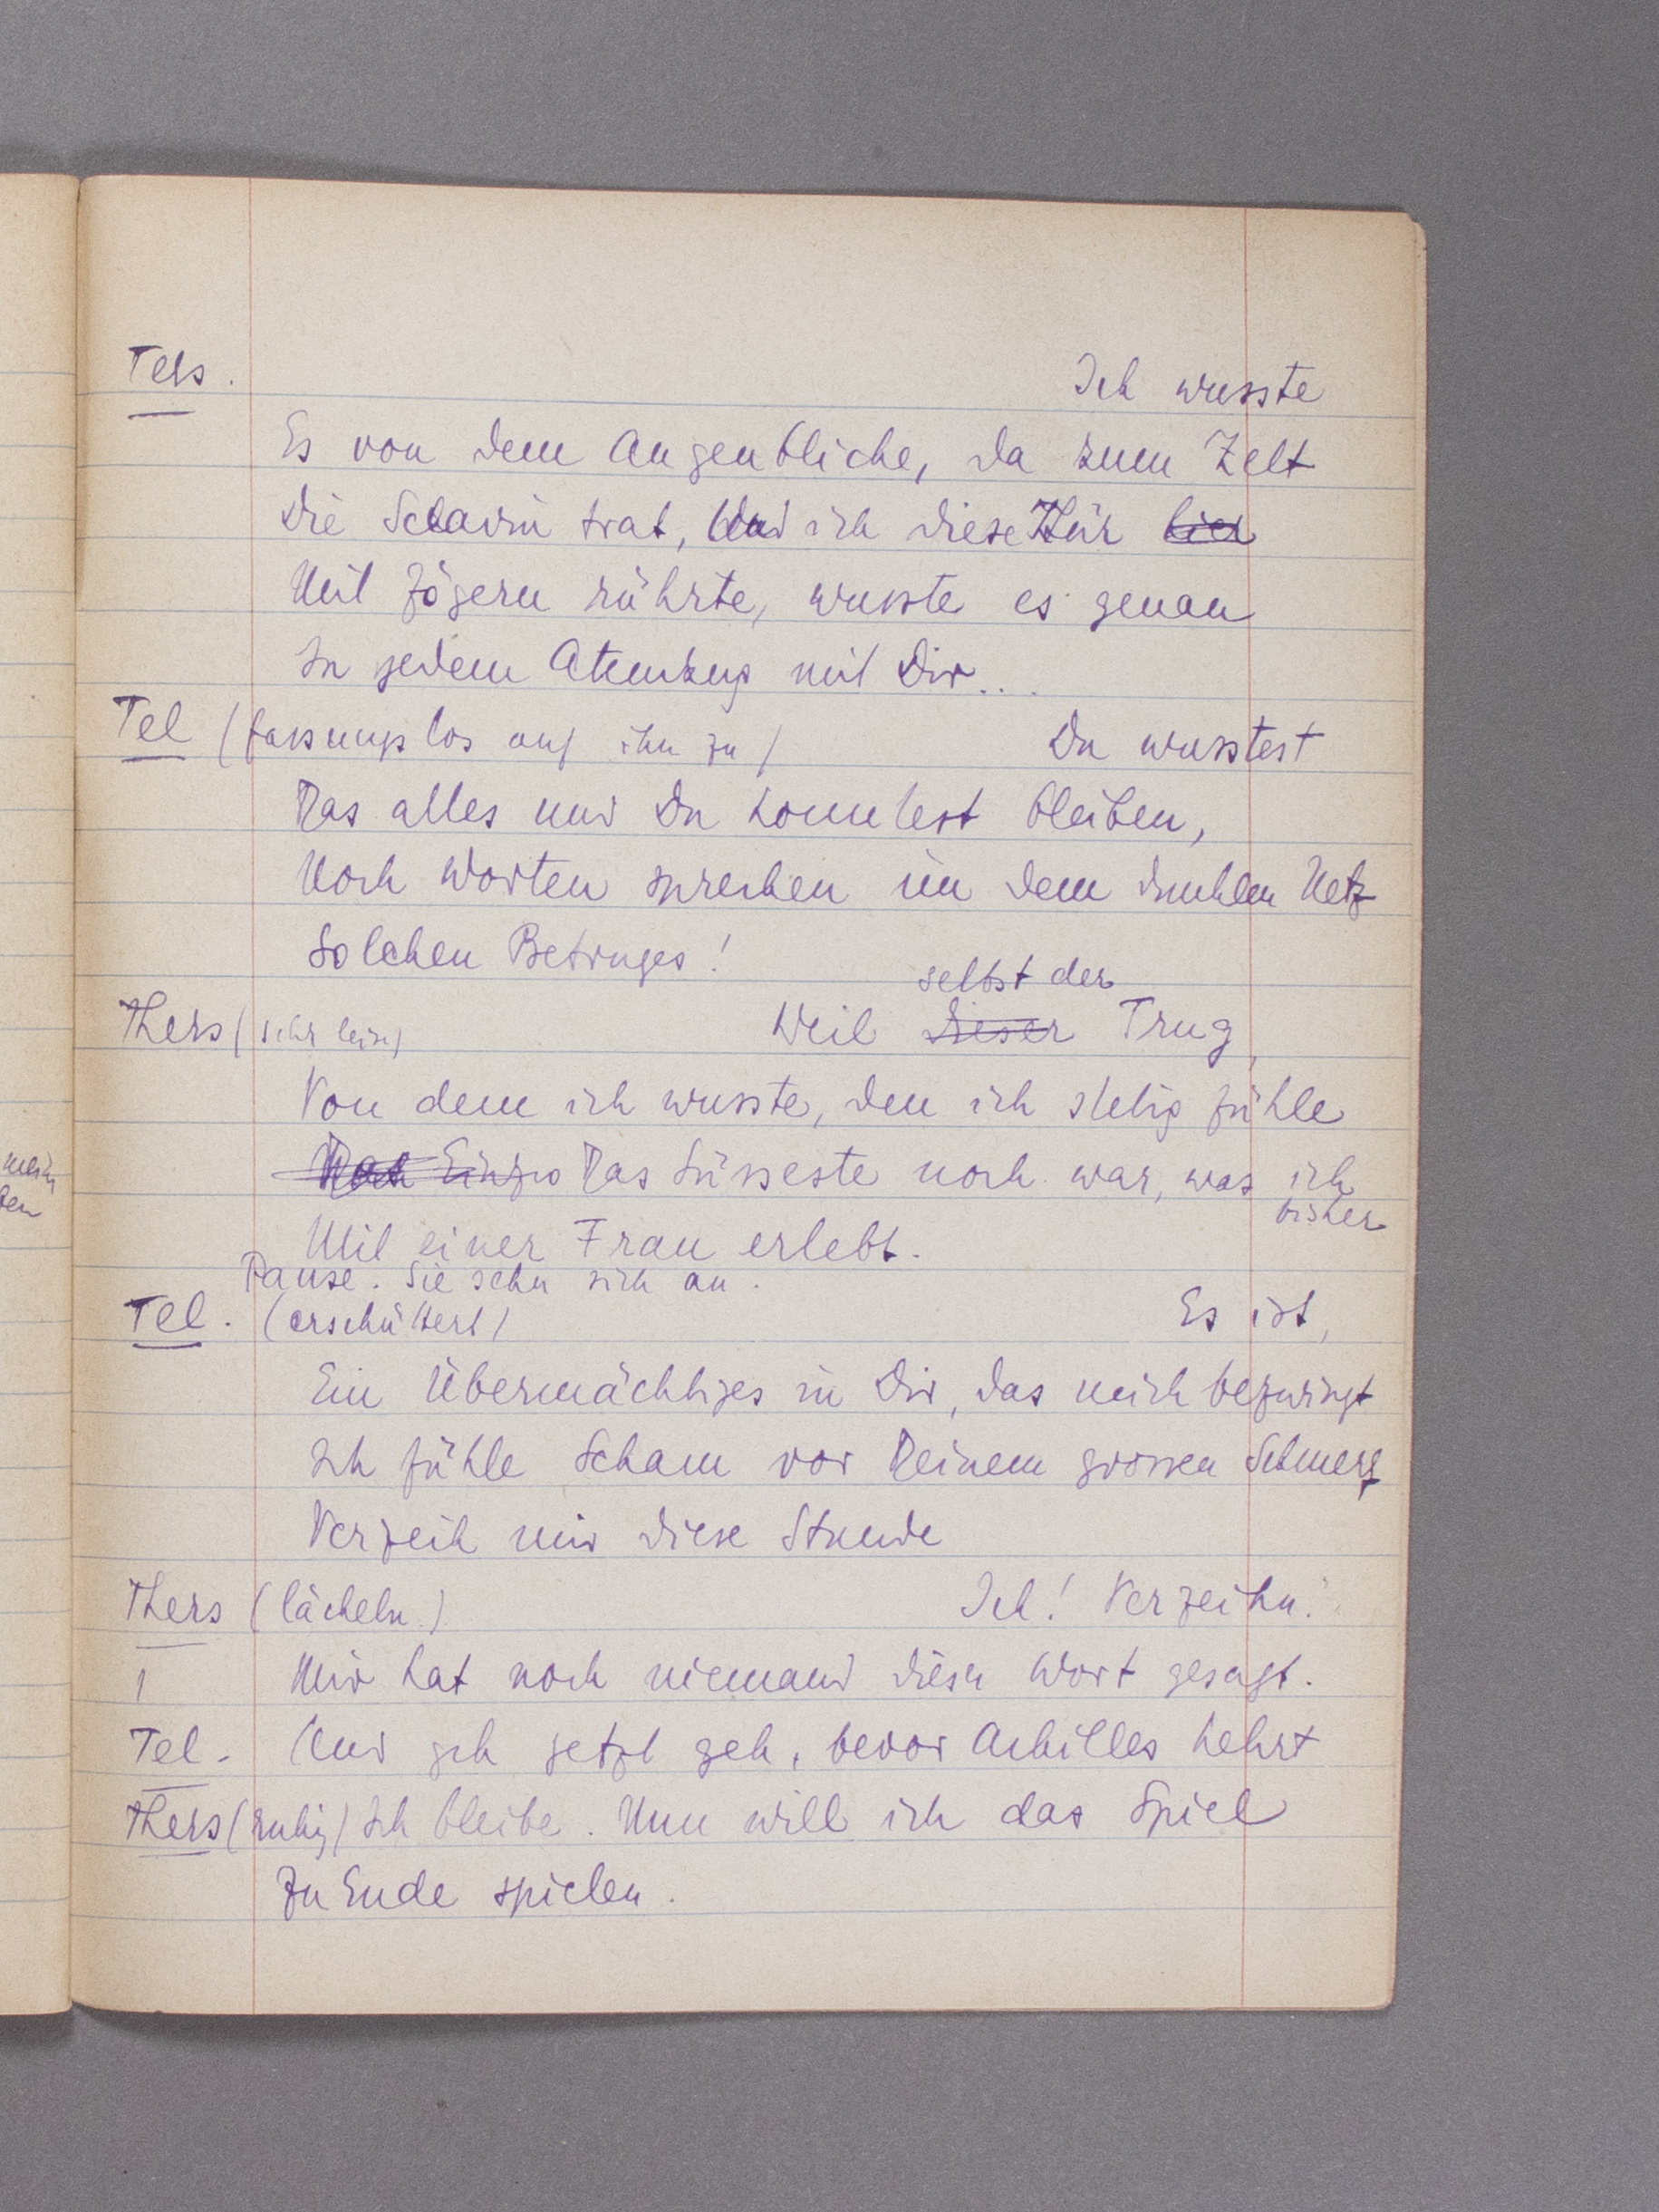 Ters. Ich wusste
Es von dem Augenblicke, da zum Zelt
Die Sclavin trat, Und ich diese Thür hier
Mit Zögern rührte, wusste es genau
In jedem Atemzug mit Dir...
Tel (fassungslos auf ihn zu) Du wusstest
Das alles und Du konntest bleiben,
Noch Worten sprechen im dem dunklen Netz
Solchen Betruges!
selbst der
Thers (sehr leise) Weil dieser Trug,
Von dem ich wusste, den ich stetig fühle
Das Süsseste noch war, was ich
bisher
Mit einer Frau erlebt.
Pause. Sie sehn sich an.
Tel. (erschüttert) Es ist,
Ein Übermächtiges in Dir, das mich bezwingt
Ich fühle Scham vor Deinem grossen Schmerz
Verzeih mir diese Stunde
Thers (lächeln.) Ich! Verzeihn!
Mir hat noch niemand dies Wort gesagt.
Tel. Und geh jetzt geh, bevor Achilles kehrt
Thers (ruhig) Ich bleibe. Nun will ich das Spiel
Zu Ende spielen.